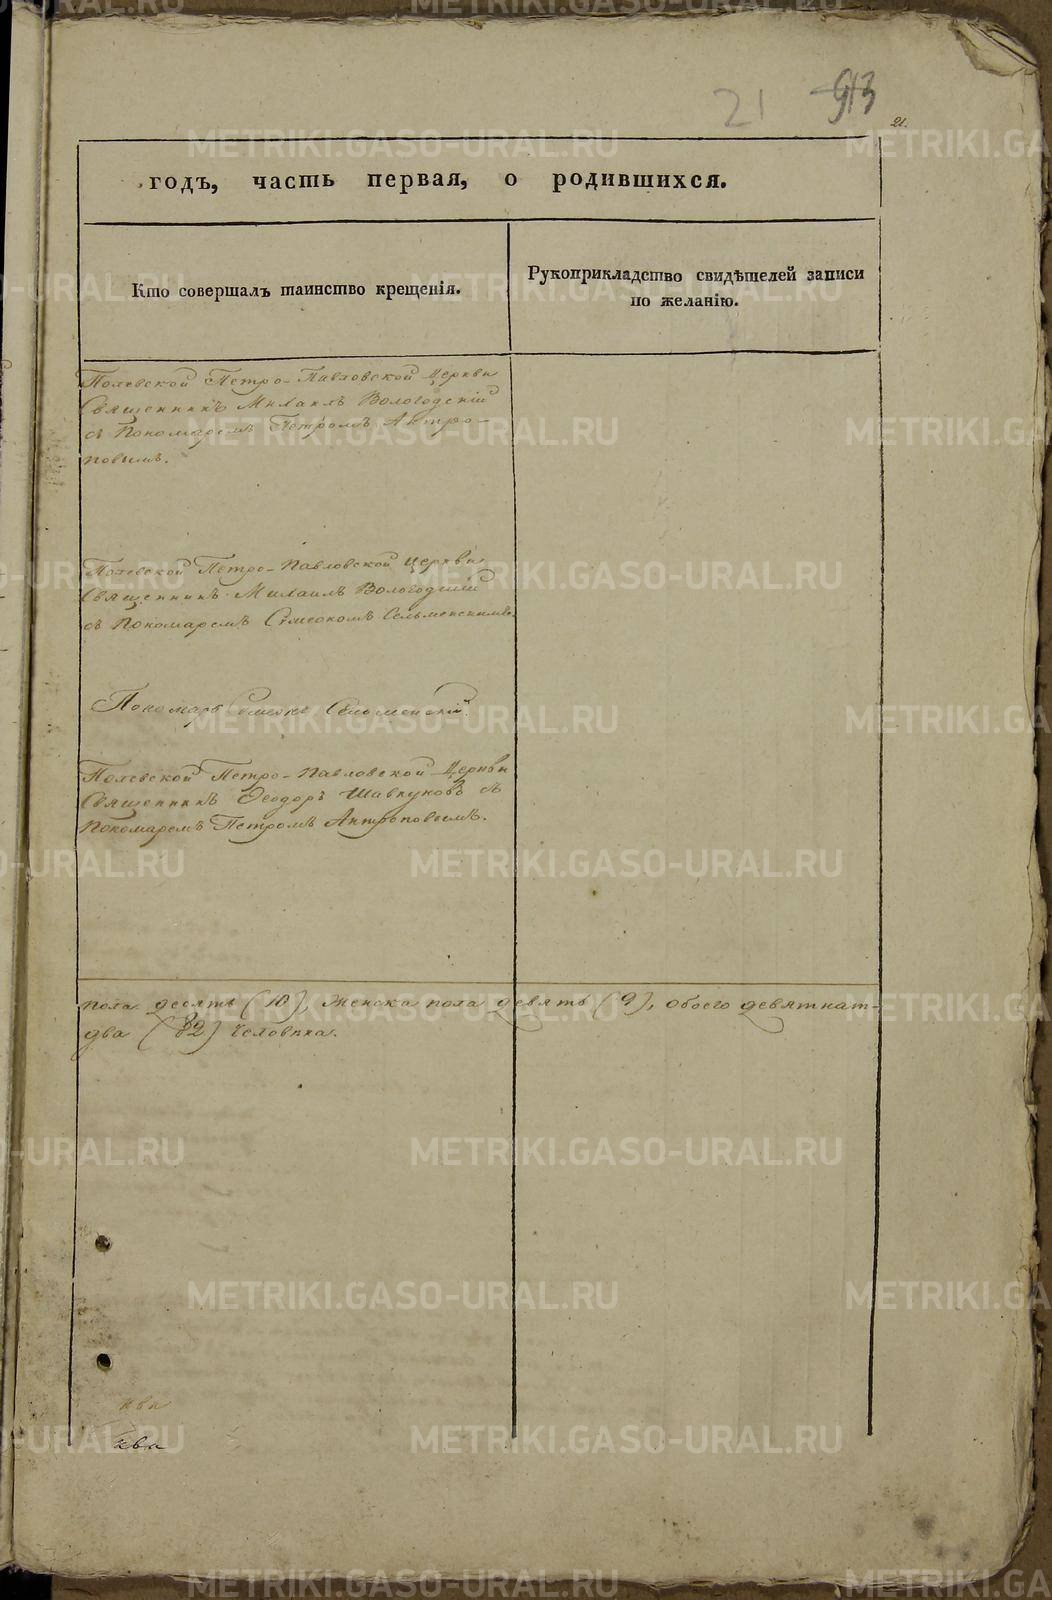 21
913
21.
годъ, часть первая, о родившихся.
Кто совершалъ таинство крещенія.
Рукоприкладство свидѣтелей записи
по желанію.
Полевской Петро-Павловской Церкви
Священникъ Михаилъ Вологодскій
съ Пономаремъ Петромъ Антро-
повымъ.
Полевской Петро-Павловской Церкви
Священникъ Михаилъ Вологодскій
съ Пономаремъ Сельменскимъ.
Пономарь Сельменскій.
Полевской Петро-Павловской Церкви
Священникъ Ѳеодоръ Шавкуновъ съ
Пономаремъ Петромъ Антроповымъ.
пола десять (10), женска пола девять (9), обоего девятнат-
два (32) человѣка.
METRIKI.GASO-URAL.RU